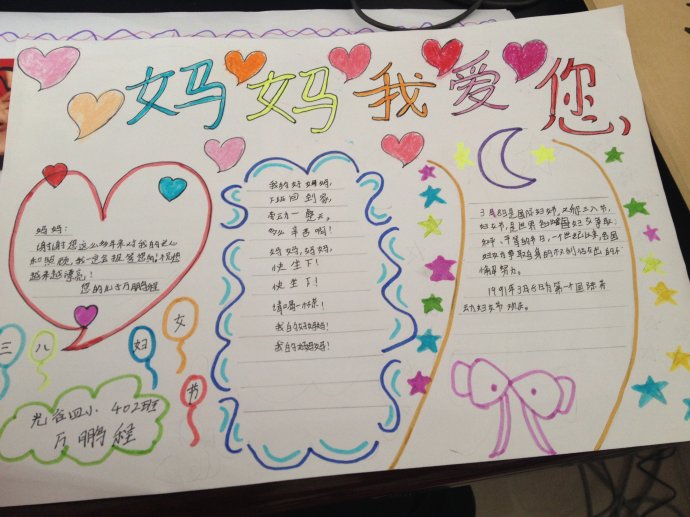 妈妈我爱您
妈妈:
谢谢您这么多年来对我的关心
和照顾,我一定会报答您的!祝您
越来越漂亮!
您的儿子万鹏程
三八妇女节
光谷四小 402班
万鹏程
我的好妈妈,
下班回到家,
劳动了一天,
多么辛苦啊!
妈妈,妈妈,
快坐下!
快坐下!
请喝一杯茶!
我的好妈妈!
我的好妈妈!
3月8日是国际妇女节,又称三八节,
妇女节,是世界各国妇女争取
和平、平等的节日,一个世纪以来,各国
妇女为争取自身的权利做出的不
懈努力。
动妇女节 欢庆。